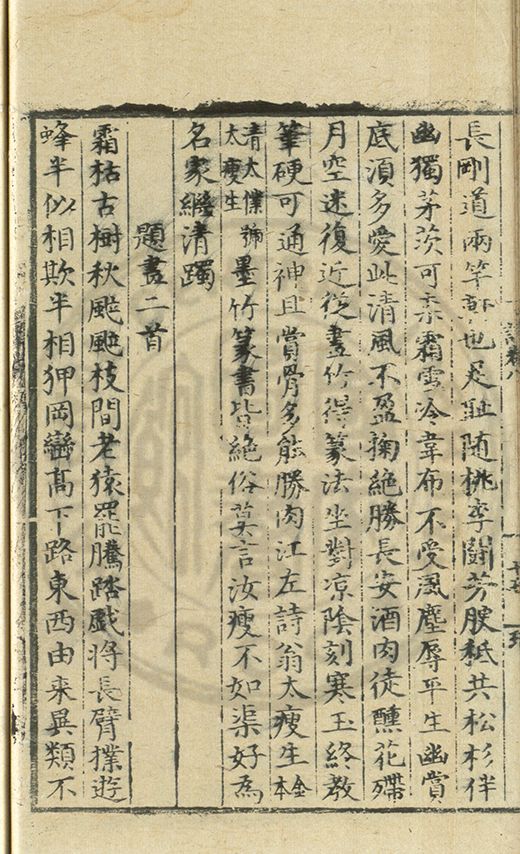 長剛道兩竿也足恥随桃李鬪芳腴秪共松杉伴
幽獨茅茨可柰霜雪冷韋布不受風塵辱平生幽賞
底湏多愛此清風不盈掬絶勝長安酒肉徒醺花殢
月空迷復近從畫竹得篆法坐對凉陰刻寒玉終教
筆硬可通神且賞骨多能勝肉江左詩翁太瘦生金本
清太僕號太瘦生墨竹篆書皆絶俗莫言汝瘦不如渠好為
名家繼清躅
題畫二首
霜枯古樹秋颼颼枝間老猿罷騰踏戲將長臂擈遊
蜂半似相欺半相狎岡巒髙下路東西由来異類不